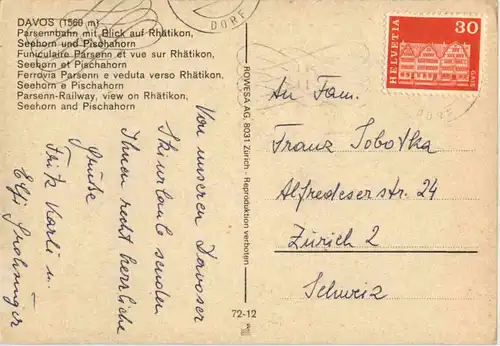 DAVOS (1560 m)
Parsennbahn mit Blick auf Rhätikon,
Seehorn und Pischahorn
Funiculaire Parsenn et vue sur Rhätikon,
Seehorn et Pischahorn
Ferrovia Parsenn e veduta verso Rhätikon,
Seehorn e Pischahorn
Parsenn-Railway, view on Rhätikon,
Seehorn and Pischahorn
Von unseren Davoser
Skiurlaub senden
Ihnen recht herzliche
Grüße
Fritz Karli u.
Elfi
ROWESA AG, 8031 Zürich - Reproduktion verboten
72-12
DORF
HELVETIA
30
GAIS
DORF
An Fam.
Franz Sobotka
Alfredeserstr. 24
Zürich 2
Schweiz